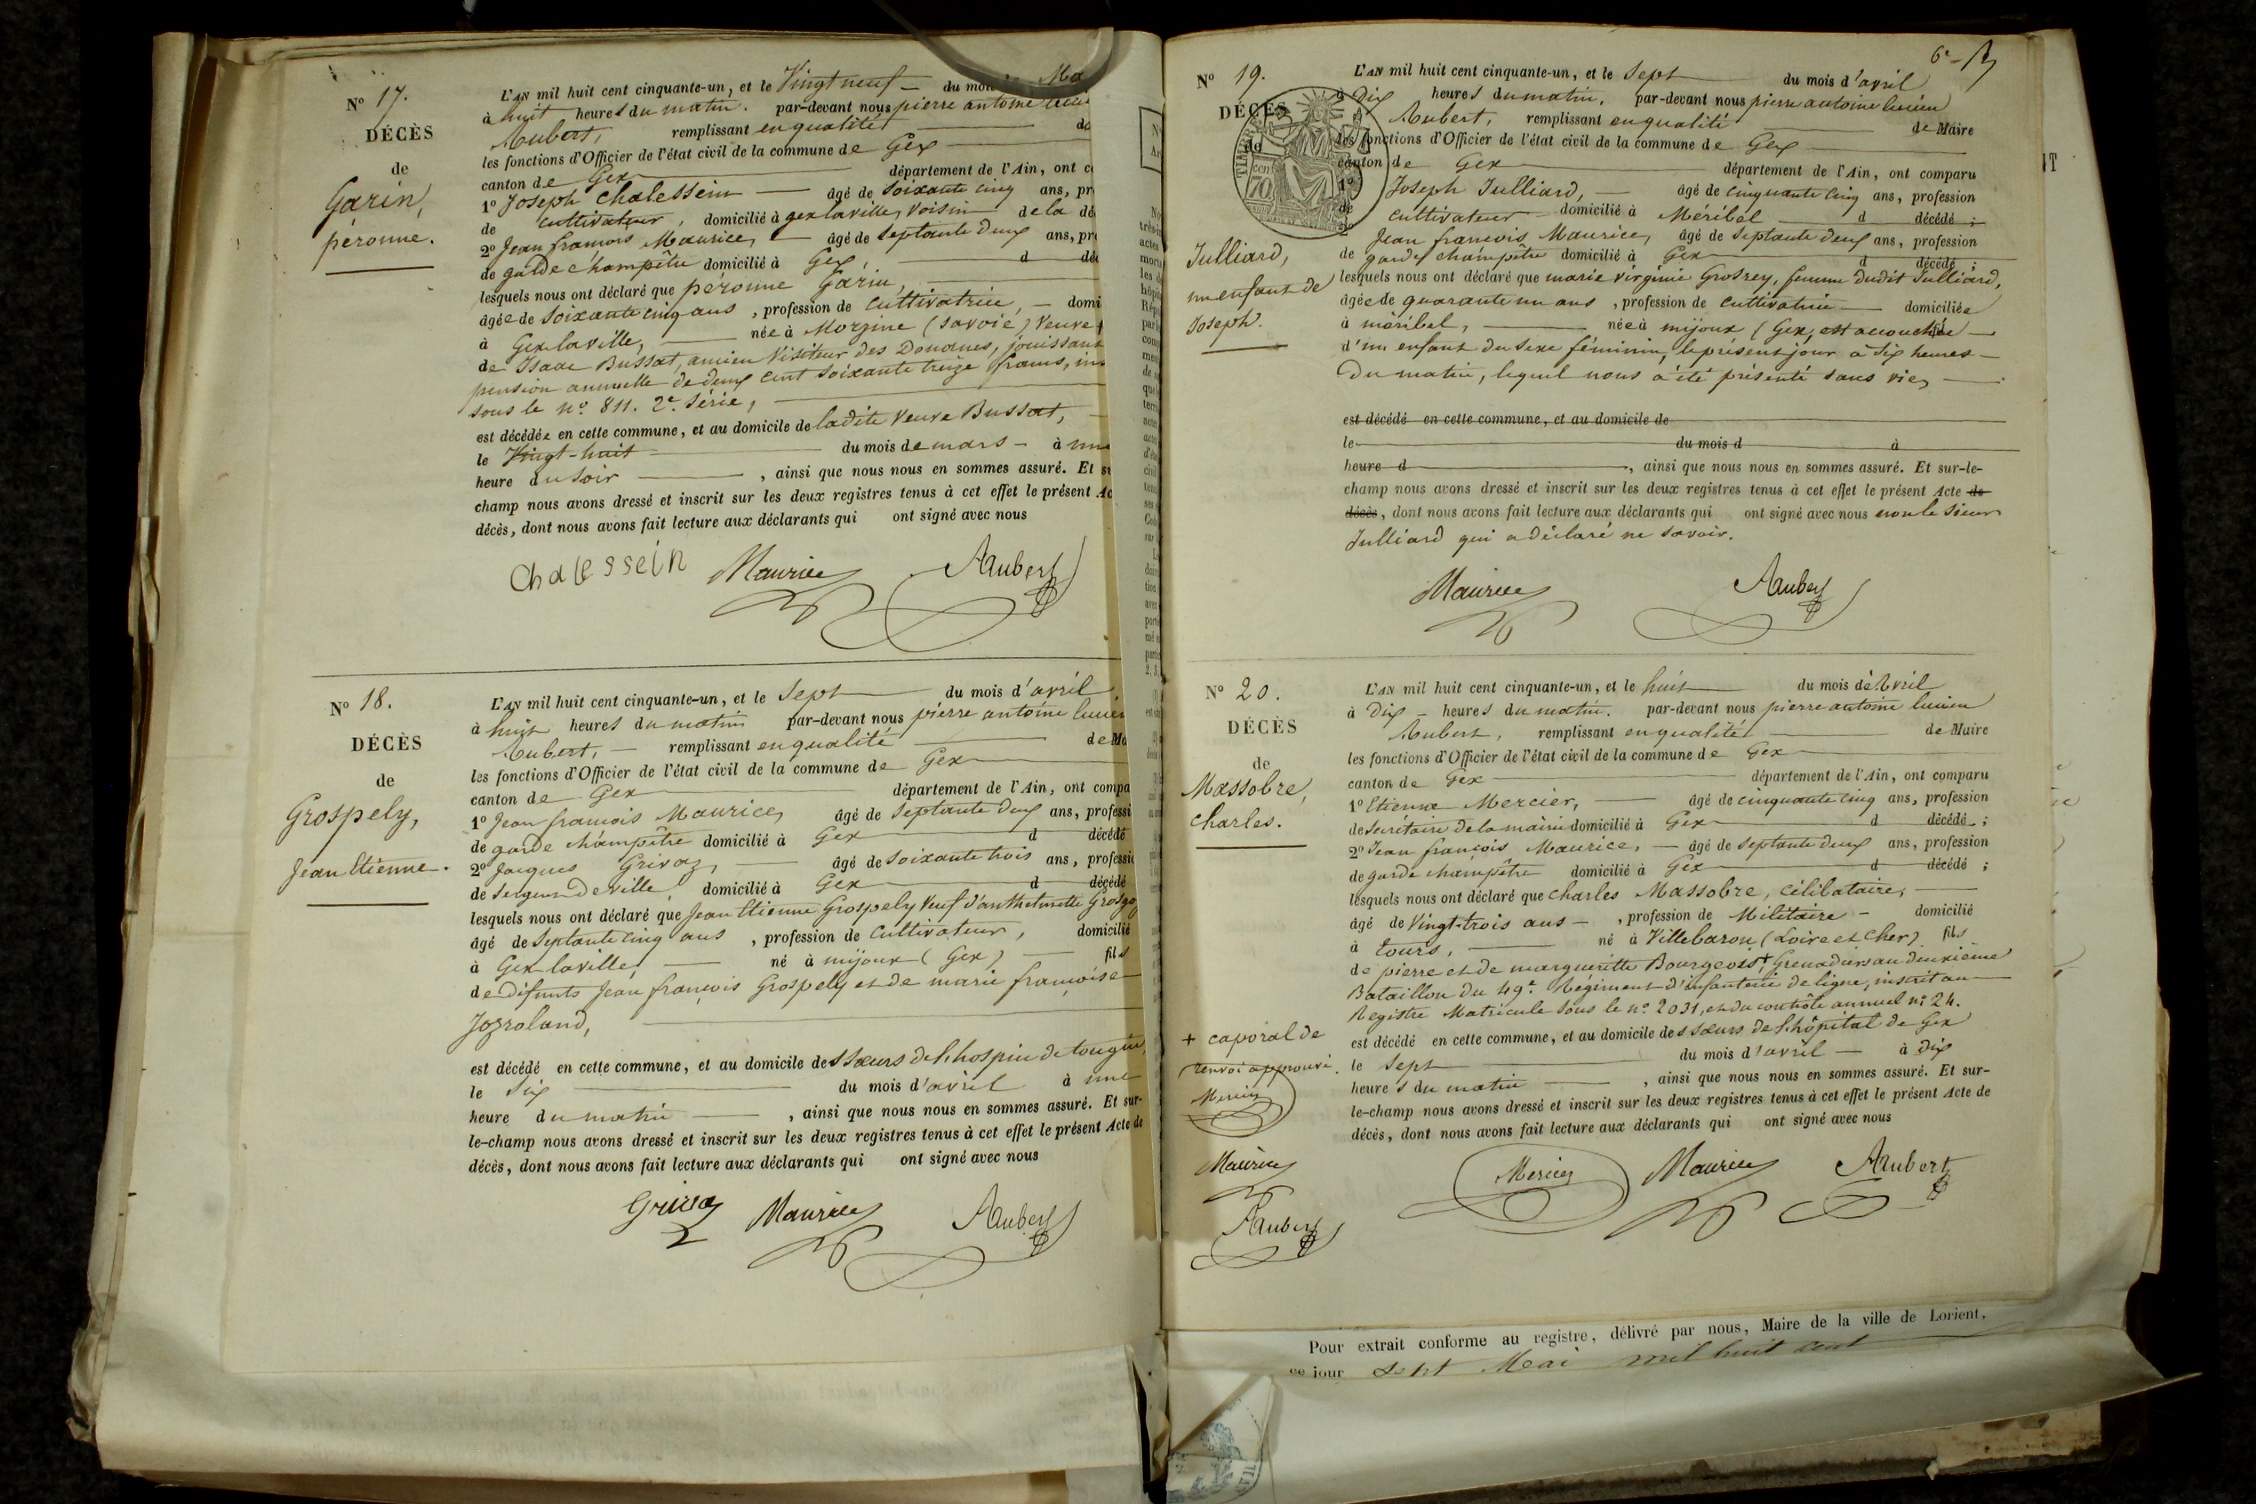 N° 17.
DÉCÈS
de
Garin,
péronne.
L'AN mil huit cent cinquante-un, et le Vingt neuf du mois Ma
à huit heures du matin. par-devant nous pierre antoine
Aubert, remplissant en qualité
les fonctions d'Officier de l'état civil de la commune de Gex
canton de Gex département de l'Ain, ont
1° Joseph Chalessein âgé de soixante cinq ans, pr
de cultivateur, domicilié à gex la ville, voisin de la dé
2° Jean françois Maurice, âgé de septante deux ans, pro
de garde champêtre domicilié à Gex, d déc
lesquels nous ont déclaré que péronne Garin,
âgée de soixante cinq ans, profession de cultivatrice, domi
à Gex la ville, née à Morzine (savoie) Veuve
de Isaac Bussat, ancien Visiteur des Douanes, jouissant
pension annuelle de deux cent soixante treize francs, in
sous le n° 811. 2e. série,
est décédée en cette commune, et au domicile de ladite Veuve Bussat,
le Vingt-huit du mois de mars à une
heure du soir, ainsi que nous nous en sommes assuré. Et
champ nous avons dressé et inscrit sur les deux registres tenus à cet effet le présent Ac
décès, dont nous avons fait lecture aux déclarants qui ont signé avec nous
Chalessein Maurice Aubert
N° 18.
DÉCÈS
de
Grospely,
Jean Etienne.
L'AN mil huit cent cinquante-un, et le sept du mois d'avril
à huit heures du matin par-devant nous pierre antoine lucien
Aubert, remplissant en qualité de Ma
les fonctions d'Officier de l'état civil de la commune de Gex
canton de Gex département de l'Ain, ont compa
1° Jean françois Maurice, âgé de septante deux ans, professi
de garde champêtre domicilié à Gex d décédé
2° Jacques Grivaz, âgé de soixante trois ans, professi
de sergent de ville domicilié à Gex d décédé
lesquels nous ont déclaré que Jean Etienne Grospely Veuf d'anthelmette
âgé de septante cinq ans, profession de cultivateur, domicilié
à Gex la ville, né à mijoux (Gex) fils
de défunts Jean françois Grospely et de marie françoise
Jozroland,
est décédé en cette commune, et au domicile des sœurs de l'hospice de tougin,
le six du mois d'avril à une
heure du matin, ainsi que nous nous en sommes assuré. Et sur-
le-champ nous avons dressé et inscrit sur les deux registres tenus à cet effet le présent Acte de
décès, dont nous avons fait lecture aux déclarants qui ont signé avec nous
Grivaz Maurice Aubert
6e
N° 19.
DÉCÈS
de
Julliard,
un enfant de
Joseph.
TIMBRE
70
L'AN mil huit cent cinquante-un, et le sept du mois d'avril
à Dix heures du matin, par-devant nous pierre antoine lucien
Aubert, remplissant en qualité de Maire
les fonctions d'Officier de l'état civil de la commune de Gex
canton de Gex département de l'Ain, ont comparu
1° Joseph Julliard, âgé de cinquante cinq ans, profession
de cultivateur domicilié à Méribel d décédé;
2° Jean françois Maurice, âgé de septante deux ans, profession
de garde champêtre domicilié à Gex d décédé;
lesquels nous ont déclaré que marie virginie Grosrey, femme dudit Julliard,
âgée de quarante un ans, profession de cultivatrice domiciliée
à méribel, née à mijoux (Gex, est accouchée
d'un enfant du sexe féminin, le présent jour à six heures
Du matin, lequel nous a été présenté sans vie,
est décédé en cette commune, et au domicile de
le du mois d à
heure d, ainsi que nous nous en sommes assuré. Et sur-le-
champ nous avons dressé et inscrit sur les deux registres tenus à cet effet le présent Acte de
décès, dont nous avons fait lecture aux déclarants qui ont signé avec nous non le sieur
Julliard qui a déclaré ne savoir.
Maurice Aubert
N° 20.
DÉCÈS
de
Massobre,
charles.
L'AN mil huit cent cinquante-un, et le huit du mois d'Avril
à Dix heures du matin. par-devant nous pierre antoine lucien
Aubert, remplissant en qualité de Maire
les fonctions d'Officier de l'état civil de la commune de Gex
canton de Gex département de l'Ain, ont comparu
1° Etienne Mercier, âgé de cinquante cinq ans, profession
de secrétaire de la mairie domicilié à Gex d décédé;
2° Jean françois Maurice, âgé de septante deux ans, profession
de garde champêtre domicilié à Gex d décédé;
lesquels nous ont déclaré que charles Massobre, célibataire,
âgé de Vingt-trois ans, profession de Militaire domicilié
à tours, né à Villebaron (Loire et Cher) fils
de pierre et de margueritte Bourgeois + Grenadiers au deuxième
Bataillon du 49e. Régiment d'infanterie de ligne, inscrit au
Registre Matricule sous le n° 2031, et du contrôle annuel n° 24.
est décédé en cette commune, et au domicile des sœurs de l'hôpital de Gex
le sept du mois d'avril à dix
heures du matin, ainsi que nous nous en sommes assuré. Et sur-
le-champ nous avons dressé et inscrit sur les deux registres tenus à cet effet le présent Acte de
décès, dont nous avons fait lecture aux déclarants qui ont signé avec nous
+ caporal de
renvoi approuvé.
Mercier
Maurice
Aubert
Mercier Maurice Aubert
Pour extrait conforme au registre, délivré par nous, Maire de la ville de Lorient,
ce jour sept Mai mil huit cent